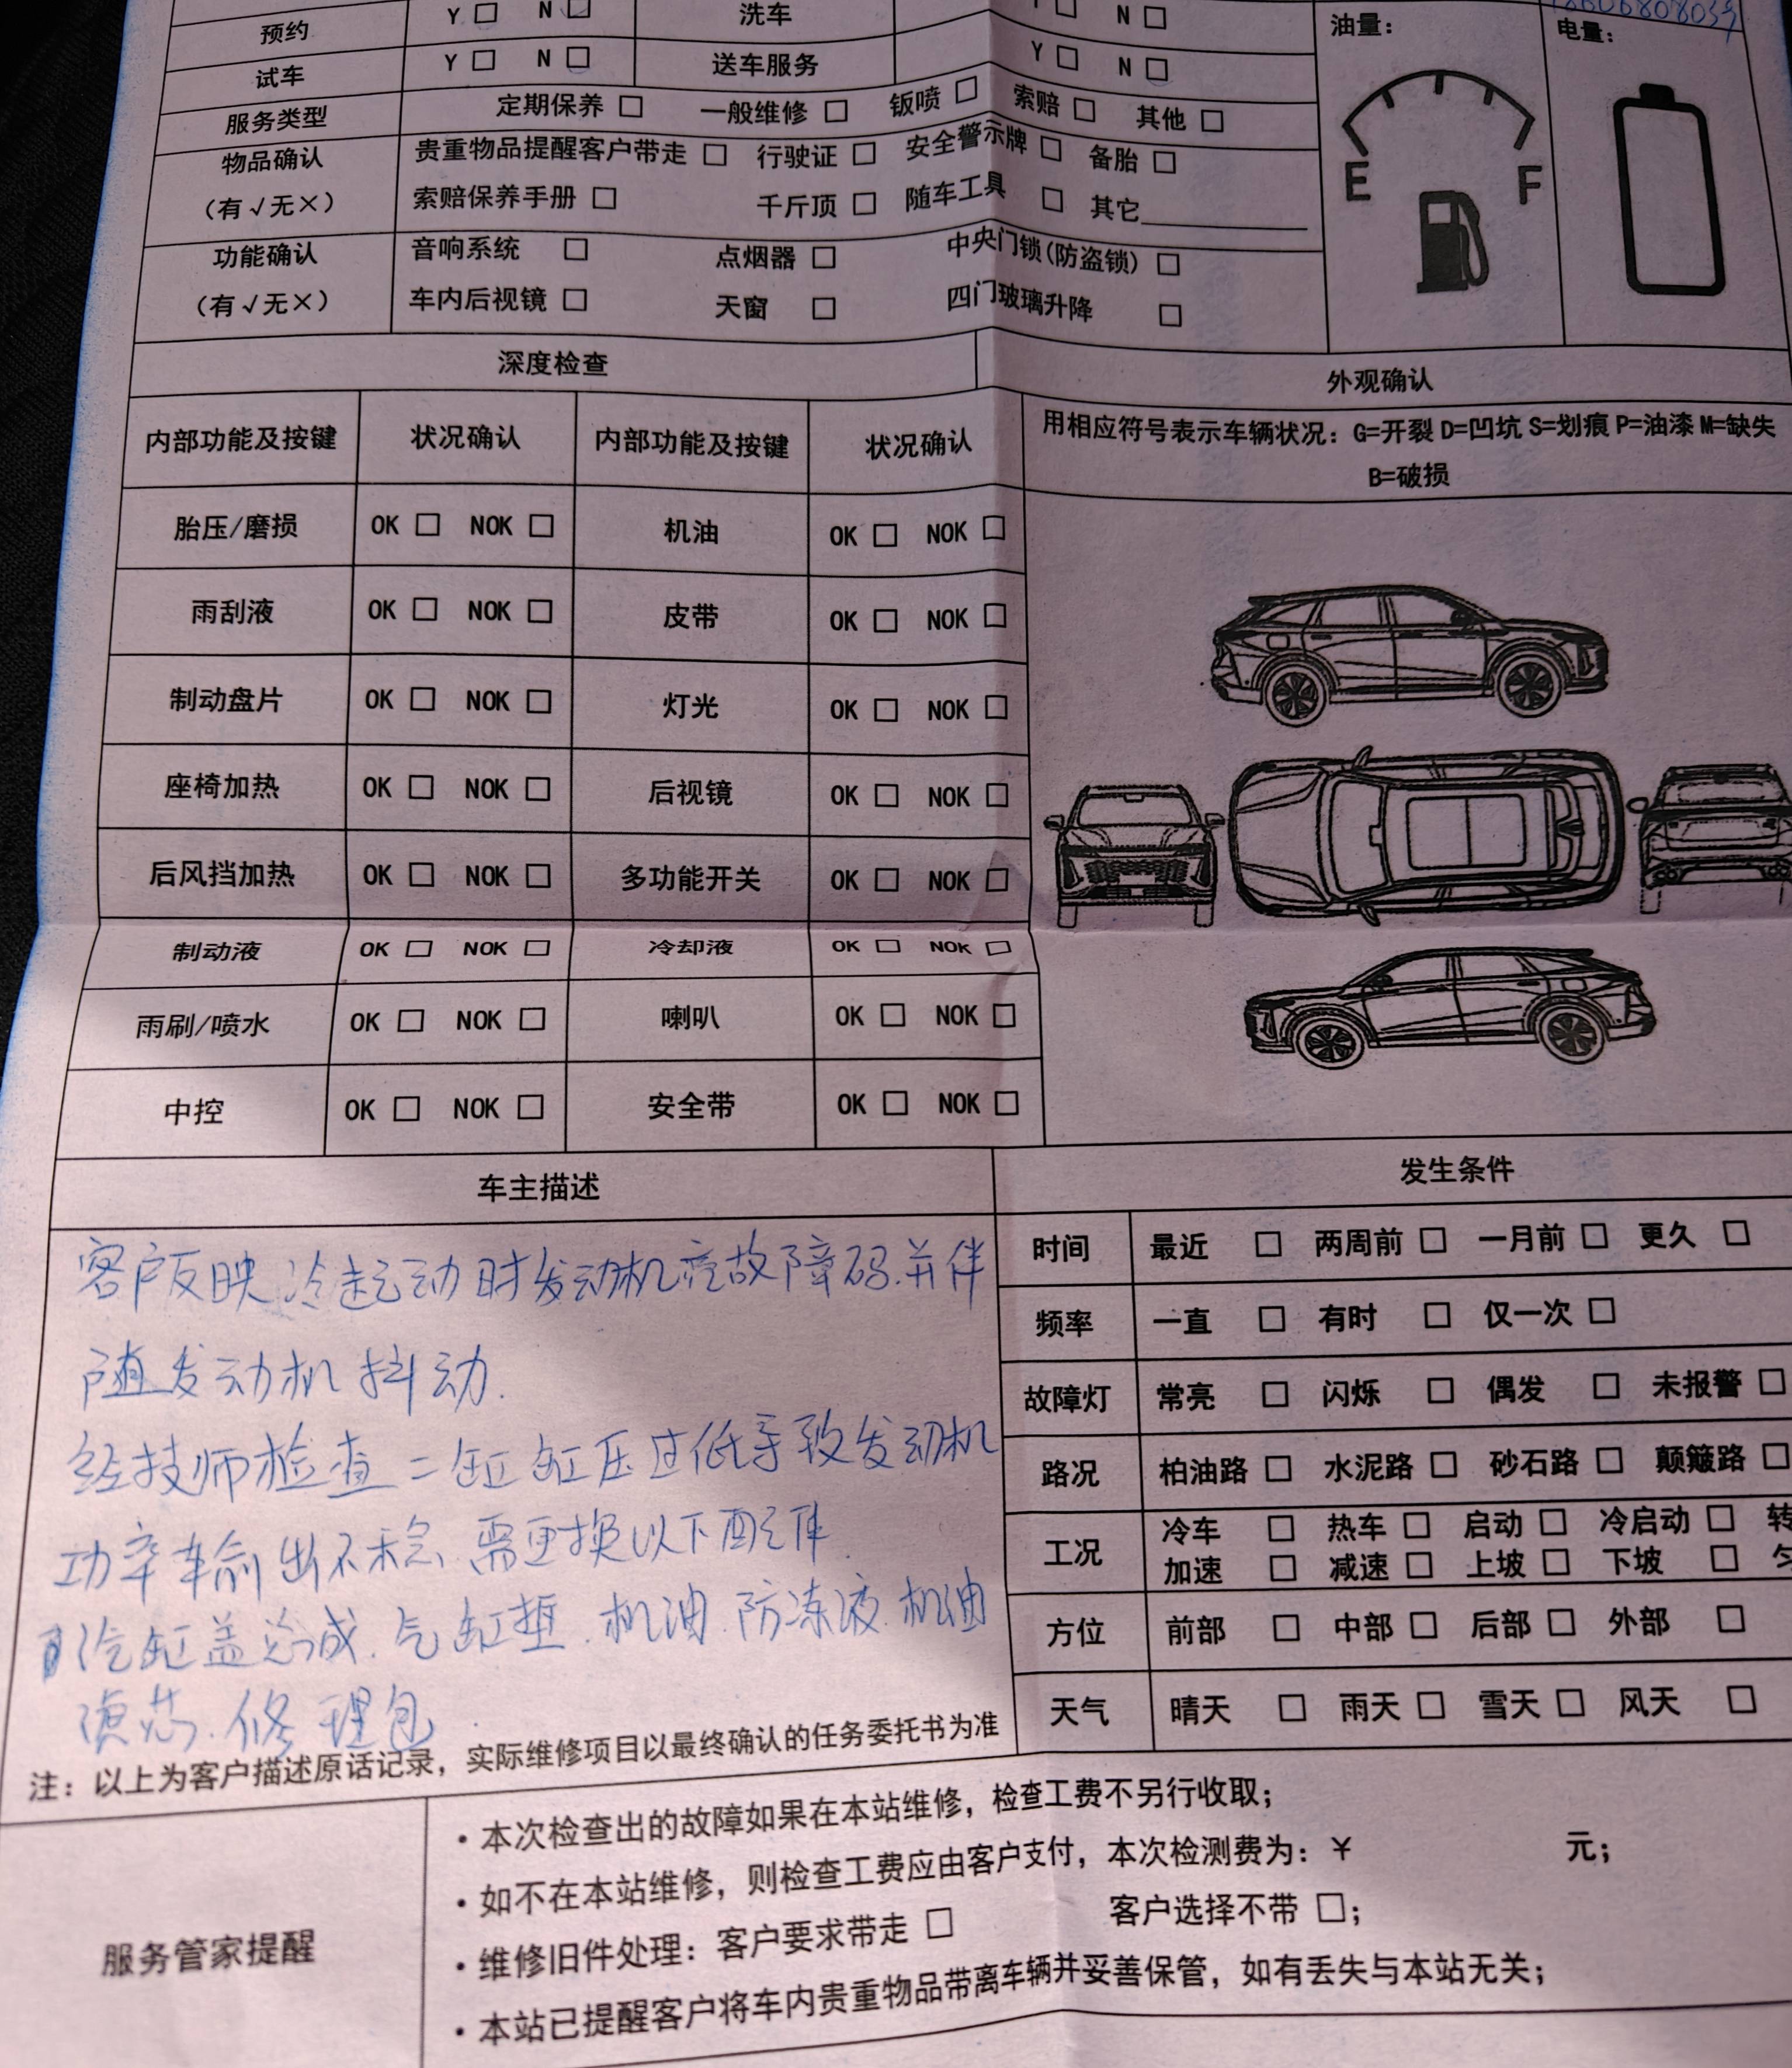 预约 Y □ N □ 洗车 Y □ N □ 油量： 电量：
试车 Y □ N □ 送车服务 Y □ N □
服务类型 定期保养 □ 一般维修 □ 钣喷 □ 索赔 □ 其他 □
物品确认 贵重物品提醒客户带走 □ 行驶证 □ 安全警示牌 □ 备胎 □
（有√无×） 索赔保养手册 □ 千斤顶 □ 随车工具 □ 其它
E F
功能确认 音响系统 □ 点烟器 □ 中央门锁(防盗锁) □
（有√无×） 车内后视镜 □ 天窗 □ 四门玻璃升降 □
深度检查 外观确认
内部功能及按键 状况确认 内部功能及按键 状况确认 用相应符号表示车辆状况：G=开裂 D=凹坑 S=划痕 P=油漆 M=缺失
B=破损
胎压/磨损 OK □ NOK □ 机油 OK □ NOK □
雨刮液 OK □ NOK □ 皮带 OK □ NOK □
制动盘片 OK □ NOK □ 灯光 OK □ NOK □
座椅加热 OK □ NOK □ 后视镜 OK □ NOK □
后风挡加热 OK □ NOK □ 多功能开关 OK □ NOK □
制动液 OK □ NOK □ 冷却液 OK □ NOK □
雨刷/喷水 OK □ NOK □ 喇叭 OK □ NOK □
中控 OK □ NOK □ 安全带 OK □ NOK □
车主描述
客户反映冷起动时发动机亮故障码.并伴
随发动机抖动.
经技师检查二缸缸压过低导致发动机
功率输出不稳.需更换以下配件
汽缸盖总成.气缸垫.机油.防冻液.机油
滤芯.修理包
注：以上为客户描述原话记录，实际维修项目以最终确认的任务委托书为准
发生条件
时间 最近 □ 两周前 □ 一月前 □ 更久 □
频率 一直 □ 有时 □ 仅一次 □
故障灯 常亮 □ 闪烁 □ 偶发 □ 未报警 □
路况 柏油路 □ 水泥路 □ 砂石路 □ 颠簸路 □
工况 冷车 □ 热车 □ 启动 □ 冷启动 □ 转
加速 □ 减速 □ 上坡 □ 下坡 □
方位 前部 □ 中部 □ 后部 □ 外部 □
天气 晴天 □ 雨天 □ 雪天 □ 风天 □
服务管家提醒
·本次检查出的故障如果在本站维修，检查工费不另行收取；
·如不在本站维修，则检查工费应由客户支付，本次检测费为：￥ 元；
·维修旧件处理：客户要求带走 □ 客户选择不带 □；
·本站已提醒客户将车内贵重物品带离车辆并妥善保管，如有丢失与本站无关；